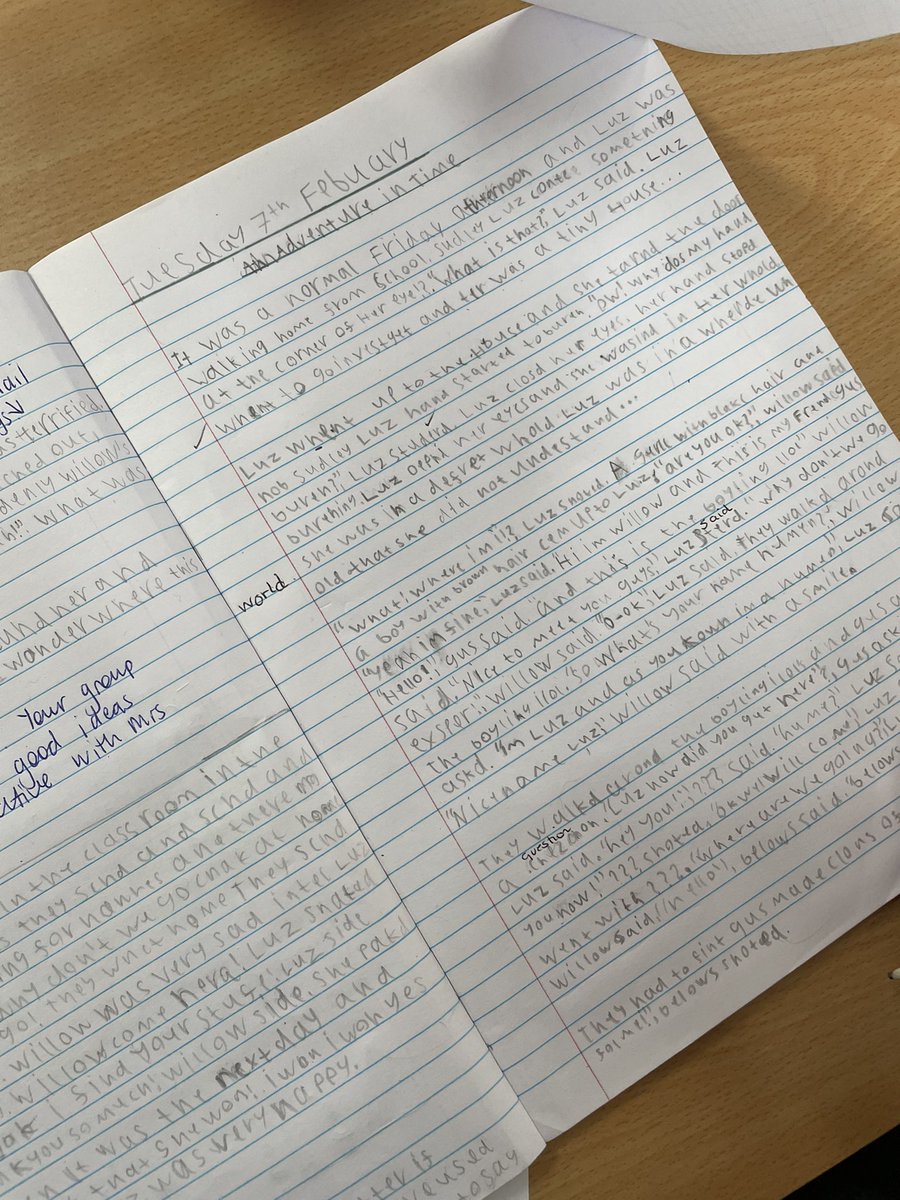 nail
terrified
ched out,
denly willow's
h!" What was
under and
wonder where this
Your group
good ideas
with Mrs
In the class room in the
s they schd and schd and
ing for hannes ane there
any don't we go chak at home
go! they whet home they schd
. willow was very sad intel Luz
. Willow come hera! Luz shated
ook i find your stuge! Luz side
k you so mech! willow side. she pakd
It was the next day and
that she won! i won i woh yes
z was very happy.
ter is
reused
to say
Tuesday 7th Febuary
An Adventure in Time
It was a normal Friday afthrnoon and Luz was
walking home from School. Sudley Luz contee something
at the corner of Her eye!? "What is that?," Luz said. Luz
whent to go investget and ter was a tiny House...
Luz whent up to the House and she tarnd the door
nob sudley Luz hand started to buren. "Ow! why dos my hand
buren?," Luz studerd. Luz closd her eyes. her hand stopd
burehing. Luz oephd her eyes and she was ind in ter whold
she was in a degret whold. Luz was in a wherde
world
old that she did not understand...
"what! where im i!?, Luz shoted. A gurle with blake hair and
a boy with brown hair cem up to Luz, "are you ok?," willow saied
"yeah im fine," Luz said. "Hi im willow and this is my Frend gus
"Hello!," gus said. "and this is the boyling ilo!" willow
said. "Nice to meet you guys," Luz said. "Why don't we go
exspeer!," willow said. "O-ok," Luz said. they walkd arond
the boyling ilol. "So what's your name humen?," Willow
askd. "I'm Luz and as you known im a humen," Luz
"Nice name Luz," willow said with a smile.
They walkd arond the boyling ilols and gus
a question. "Luz how did you get here"?, gus ask
Luz said. "hey you!," ??? said. "hu me?" Luz
you now!" ??? shoted, "ok wil will come!" Luz
went with ???. "Where are we going?"
willow said. "hello!," belows said. "belows
They had to fint gus made clons
sol me!," belows shoted.